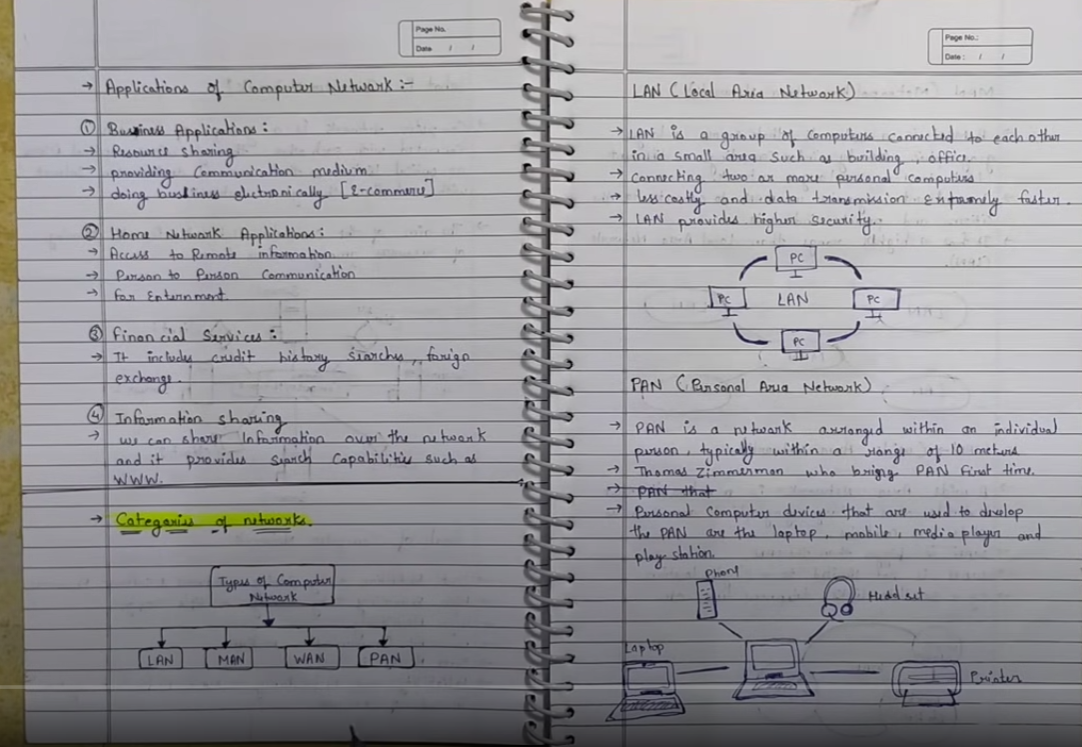 Page No.
Date / /
→ Applications of Computer Network :-
① Business Applications :
→ Resource sharing
→ providing Communication medium
→ doing business electronically [E-commerce]
② Home Network Applications :
→ Access to Remote information
→ Person to Person Communication
→ for Enternment.
③ Financial Services :
→ It includes credit history searches, forign
exchange.
④ Information sharing
→ we can share Information over the network
and it provides Search Capabilities such as
WWW.
→ Categories of networks.
Types of Computer
Network
LAN MAN WAN PAN
Page No.:
Date : / /
LAN (Local Area Network)
→ LAN is a group of computers connected to each other
in a small area such as building, office.
→ connecting two or more personal computers
→ less costly and data transmission extremely faster.
→ LAN provides higher security.
PC
PC LAN PC
PC
PAN (Personal Area Network)
→ PAN is a network arranged within an individual
person, typically within a range of 10 meters
→ Thomas Zimmerman who bring PAN first time.
→ PAN that
→ Personal Computer devices that are used to develop
the PAN are the laptop, mobile, media player and
play station.
Phone
Head set
Laptop
Printer